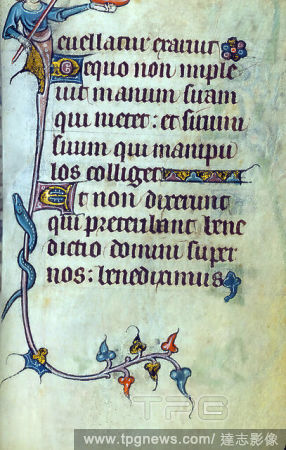 evellatur exaruit
De quo non imple
uit manum suam
qui metet: et sinum
suum qui manipu
los colliget
Et non dixerunt
qui preteribant bene
dictio domini super
nos: benediximus
TPG
www.tpgnews.com/ 達志影像